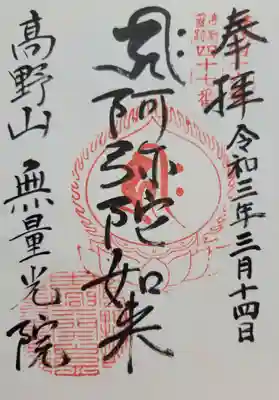 奉拝 令和三年三月十四日
阿弥陀如来
高野山 無量光院